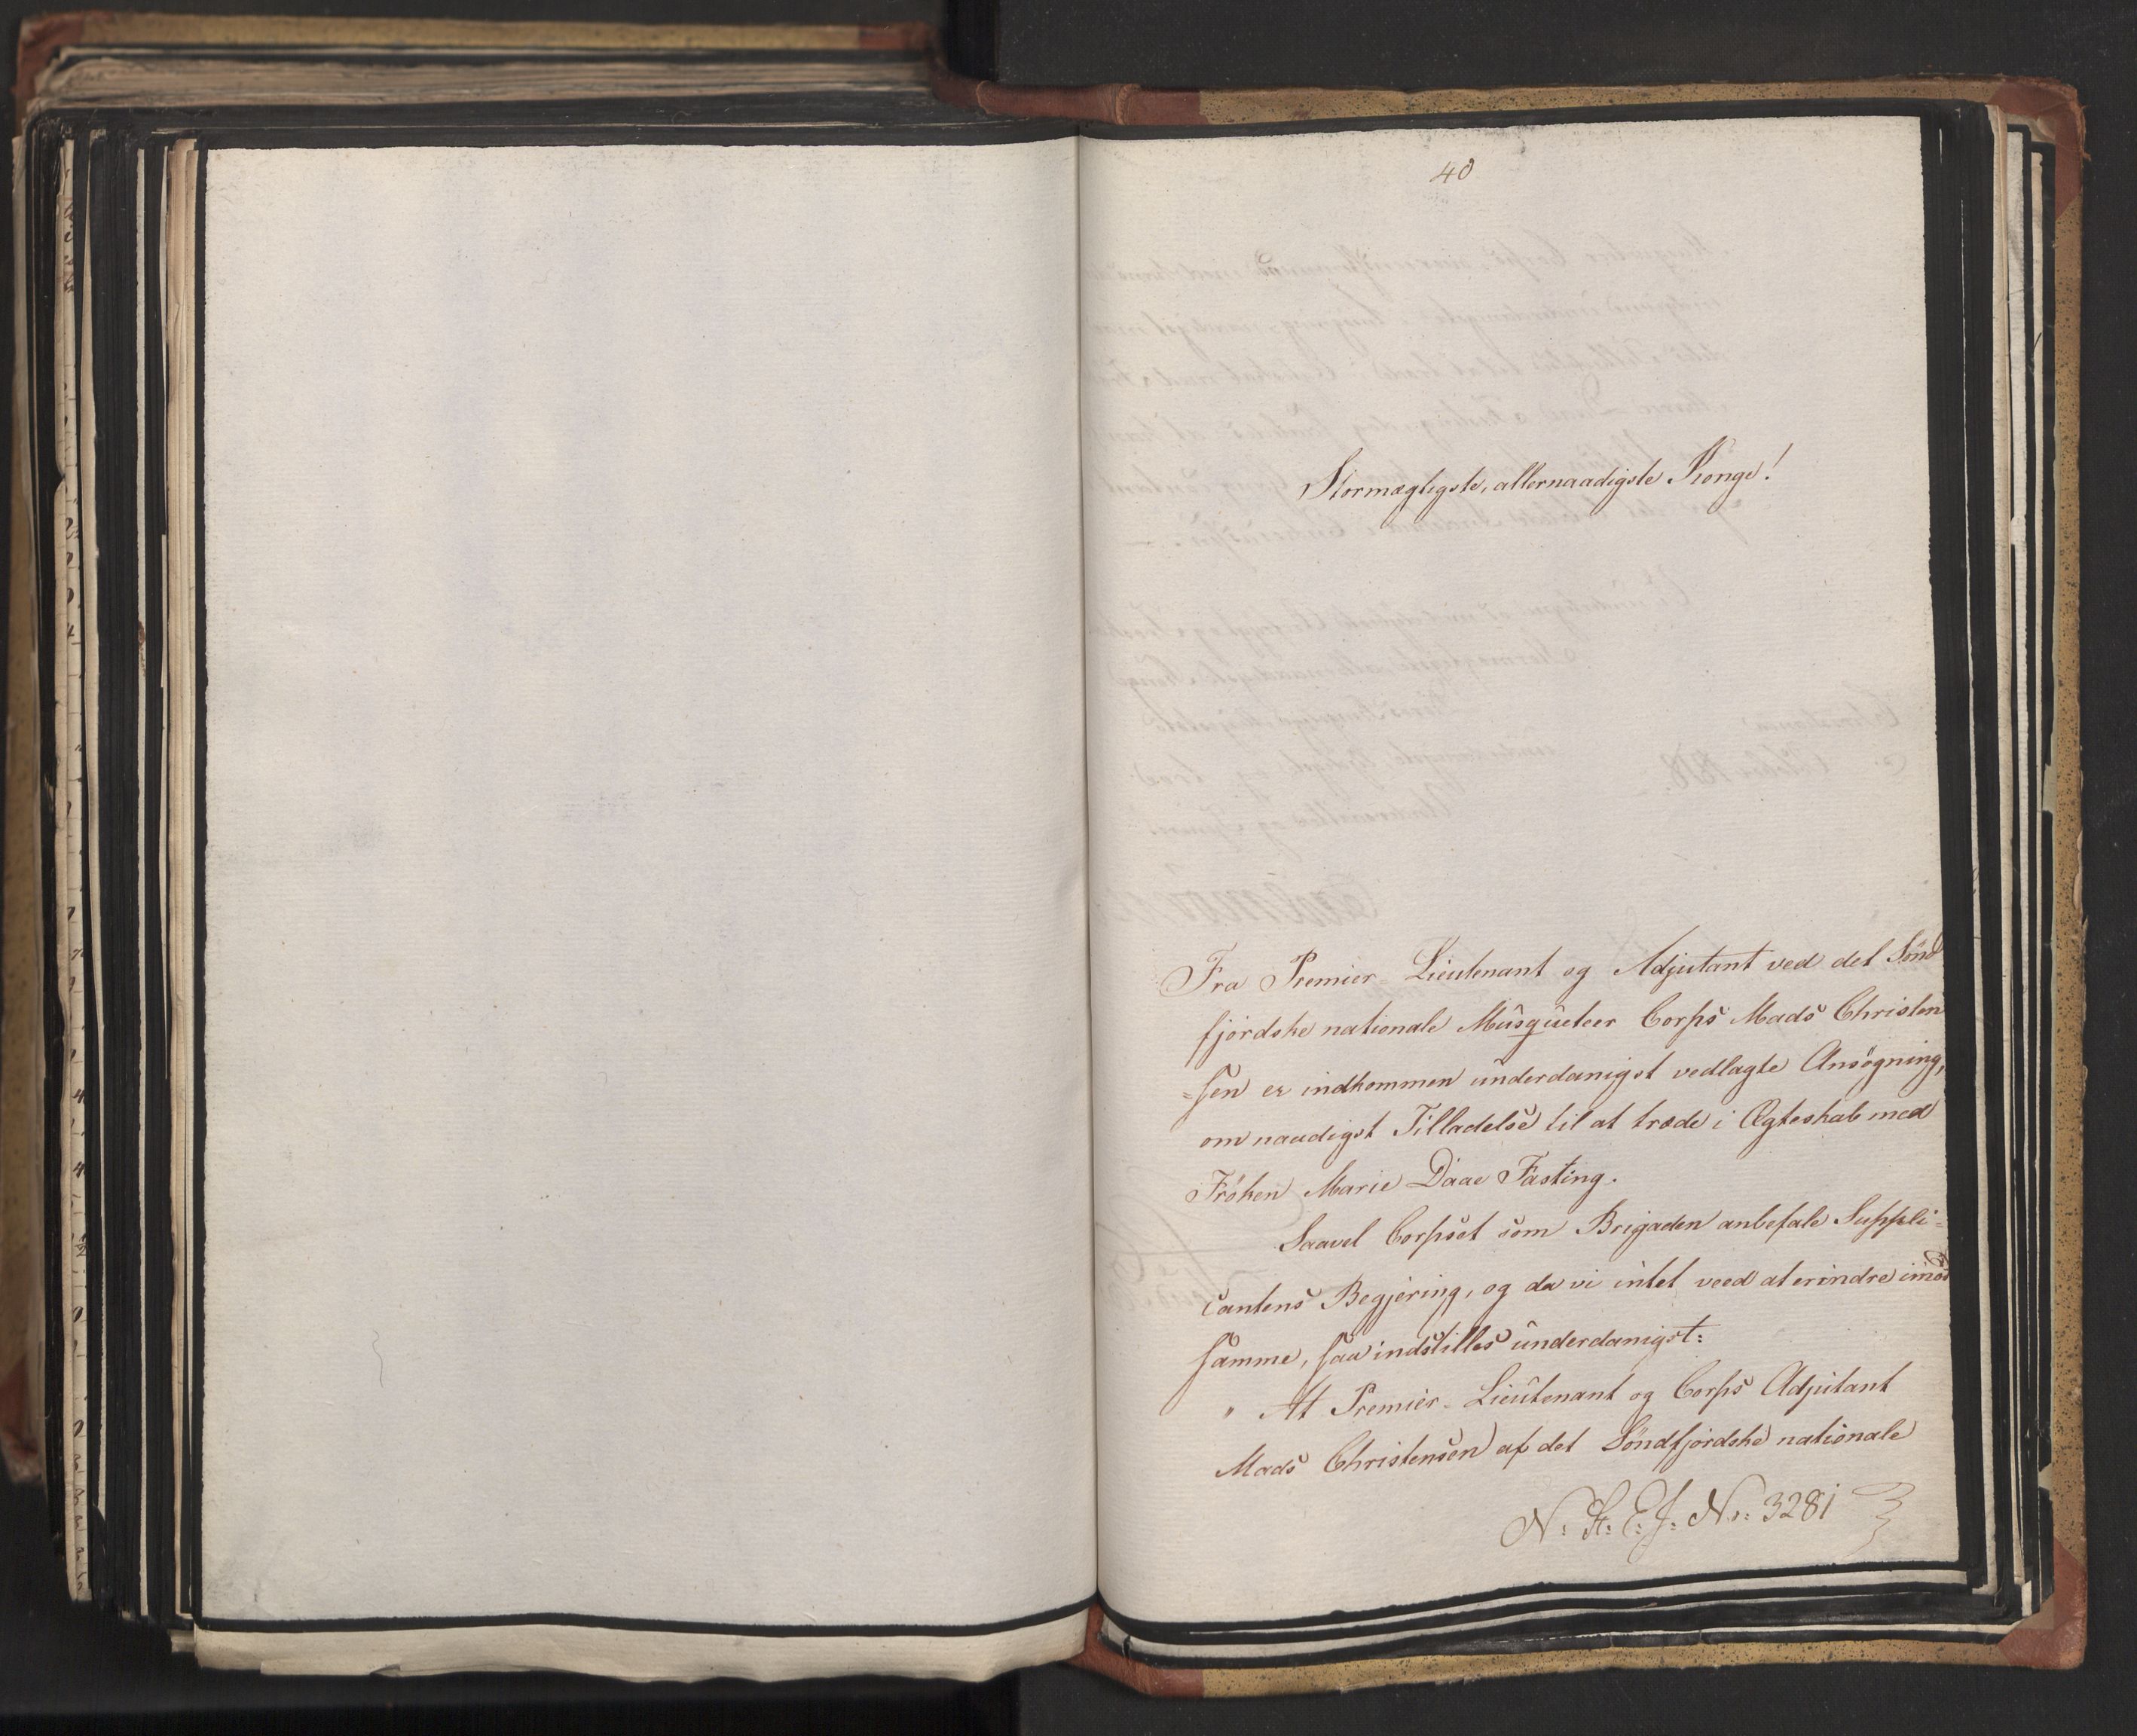 40
Stormægtigste, allernaadigste Konge!
Fra Premier-Lieutenant og Adjutant ved det Sönd
fjordske nationale Musqueteer Corps Mads Christen
=sen er indkommen underdanigst vedlagte Ansögning,
om naadigst Tilladelse til at træde i Ægteskab med
Fröken Marie Daae Fasting.
Saavel Corpset som Brigaden anbefale Suppli=
cantens Begjering, og da vi intet veed at erindre imod
samme, saa indstilles underdanigst:
" At Premier-Lieutenant og Corps Adjutant
Mads Christensen af det Söndfjordske nationale
N: St: E: J: Nr: 3281